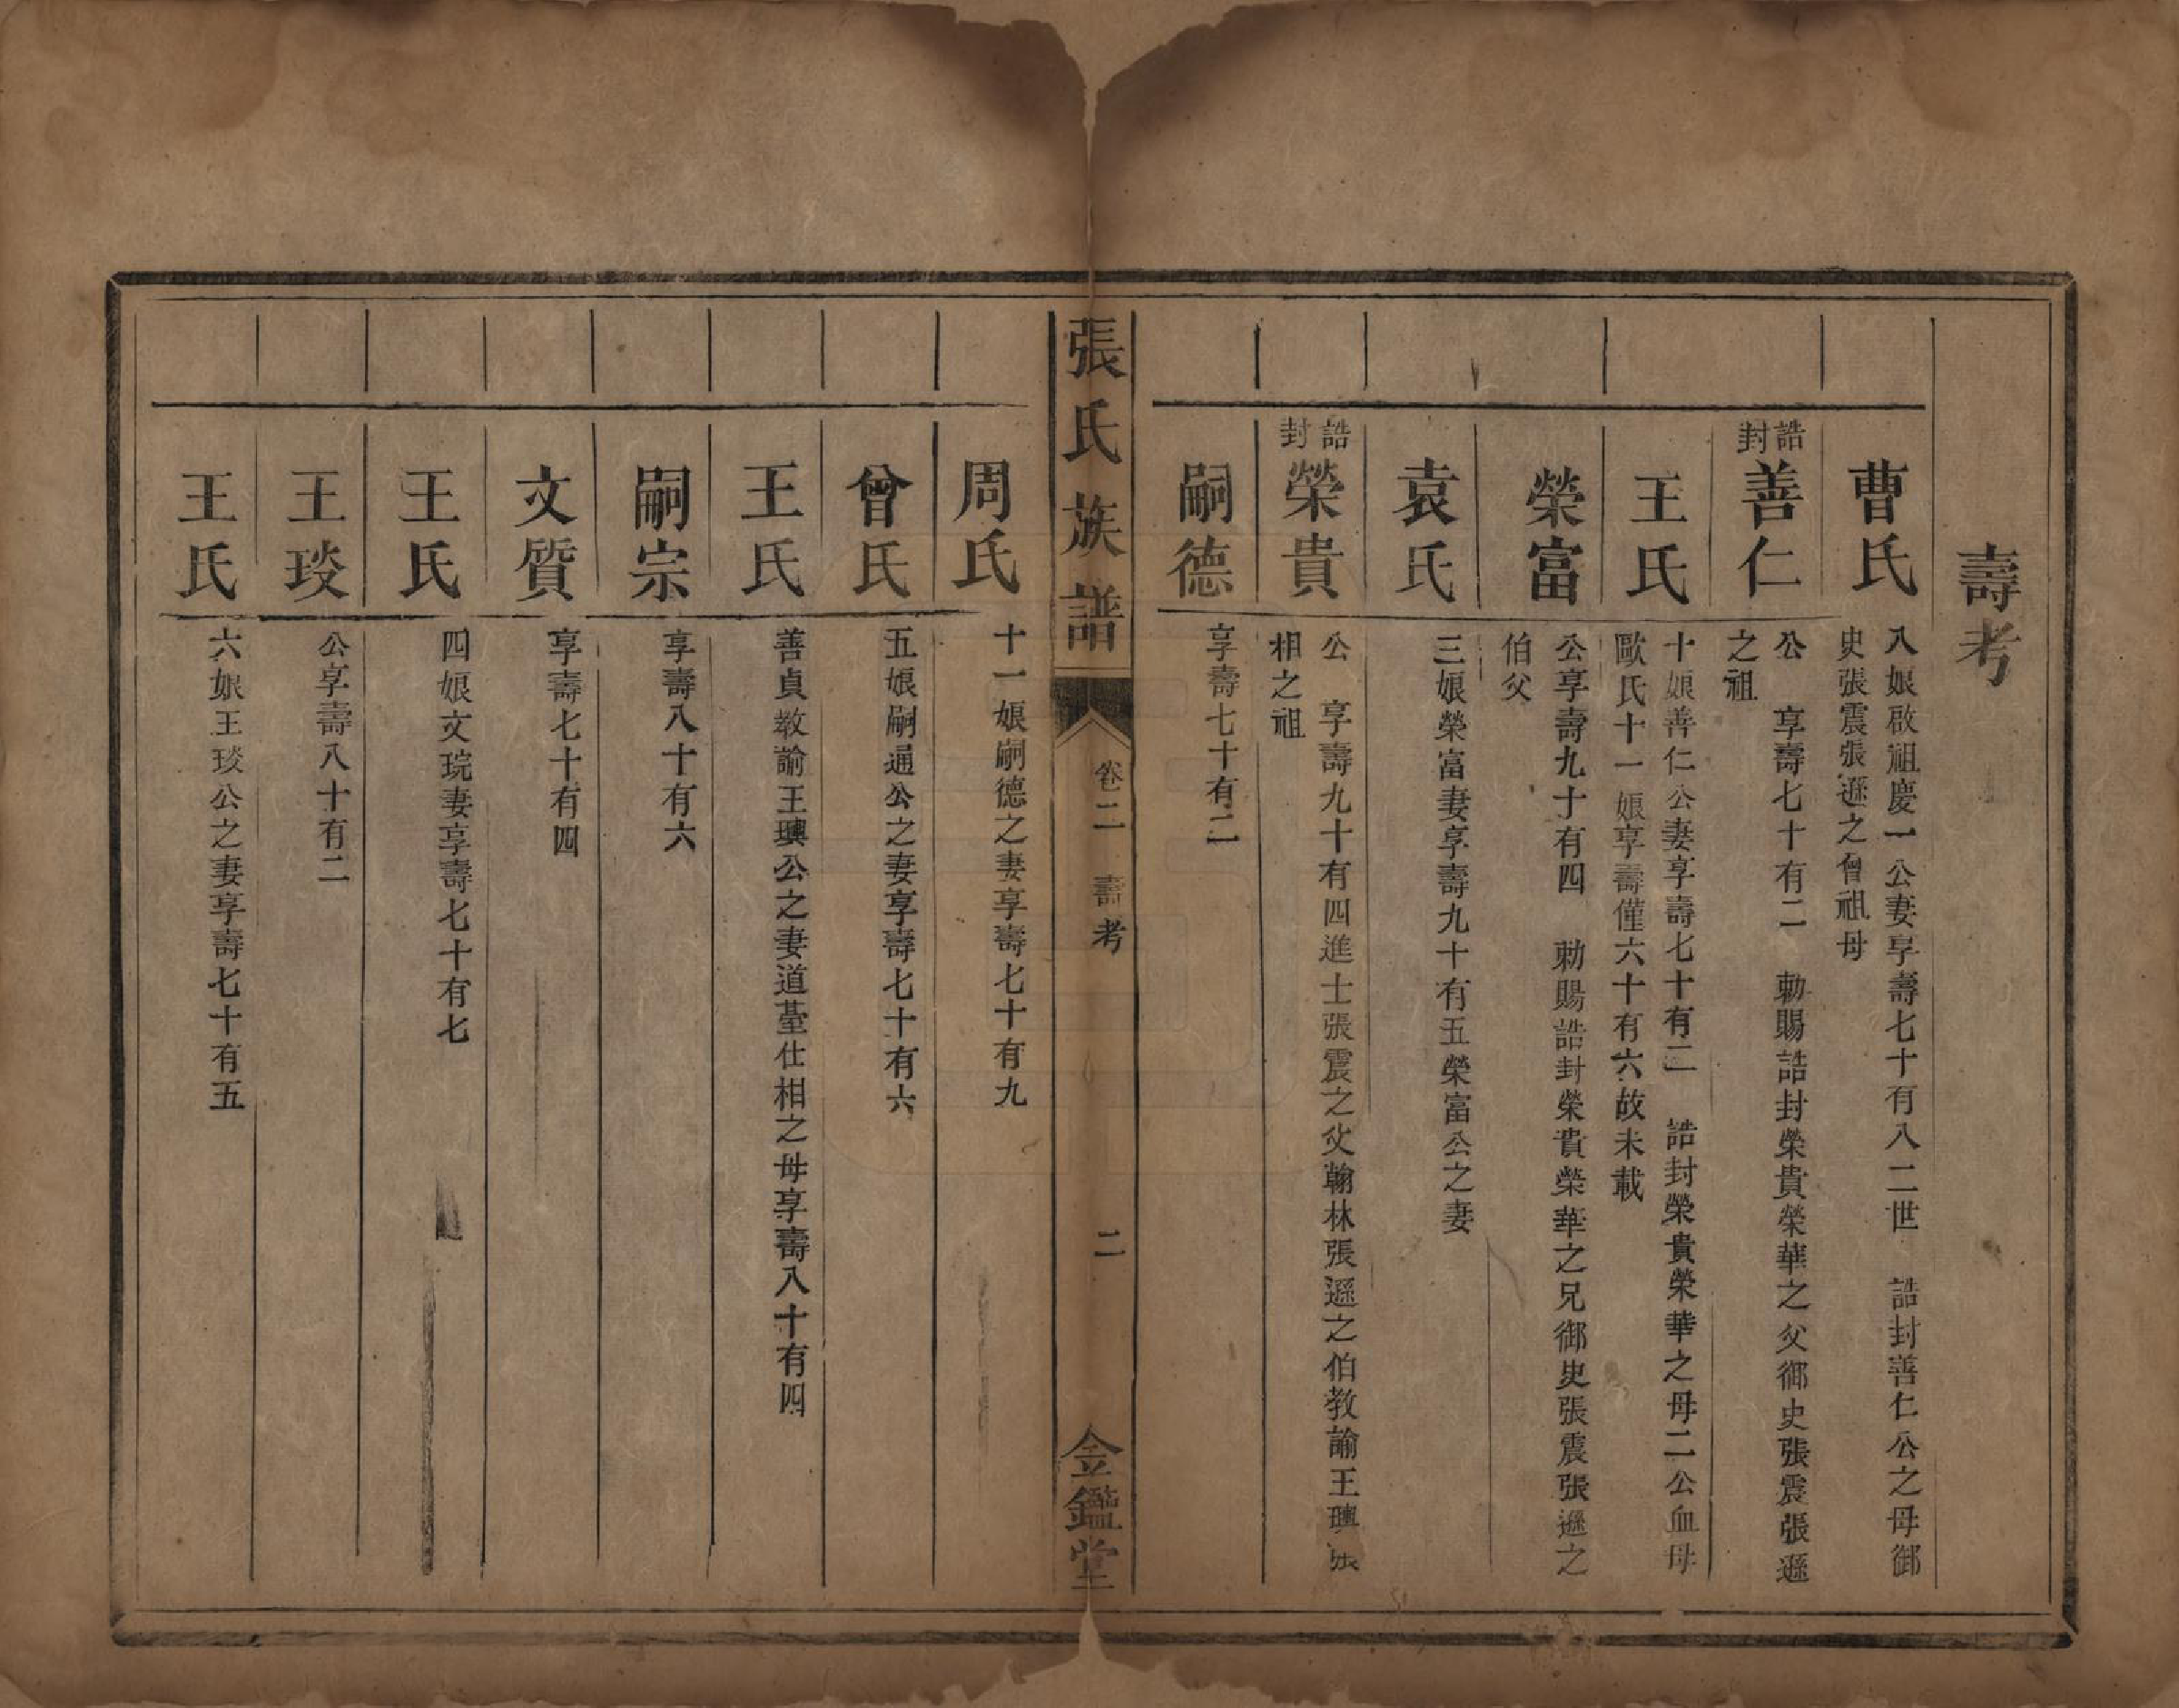 壽考
曹氏
八娘啟祖慶一公妻享壽七十有八二世　誥封善仁公之母御
史張震張遜之曾祖母
誥封善仁
公　享壽七十有二　勅賜誥封榮貴榮華之父御史張震張遜
之祖
王氏
十娘善仁公妻享壽七十有二　誥封榮貴榮華之母二公血母
歐氏十一娘享壽僅六十有六故未載
榮富
公享壽九十有四　勅賜誥封榮貴榮華之兄御史張震張遜之
伯父
袁氏
三娘榮富妻享壽九十有五榮富公之妻
誥封榮貴
公　享壽九十有四進士張震之父翰林張遜之伯教諭王璵張
相之祖
嗣德
享壽七十有二
張氏族譜　卷二　壽考　二　金鑑堂
周氏
十一娘嗣德之妻享壽七十有九
曾氏
五娘嗣通公之妻享壽七十有六
王氏
善貞教諭王璵公之妻道臺仕相之母享壽八十有四
嗣宗
享壽八十有六
文質
享壽七十有四
王氏
四娘文琓妻享壽七十有七
王琰
公享壽八十有二
王氏
六娘王琰公之妻享壽七十有五